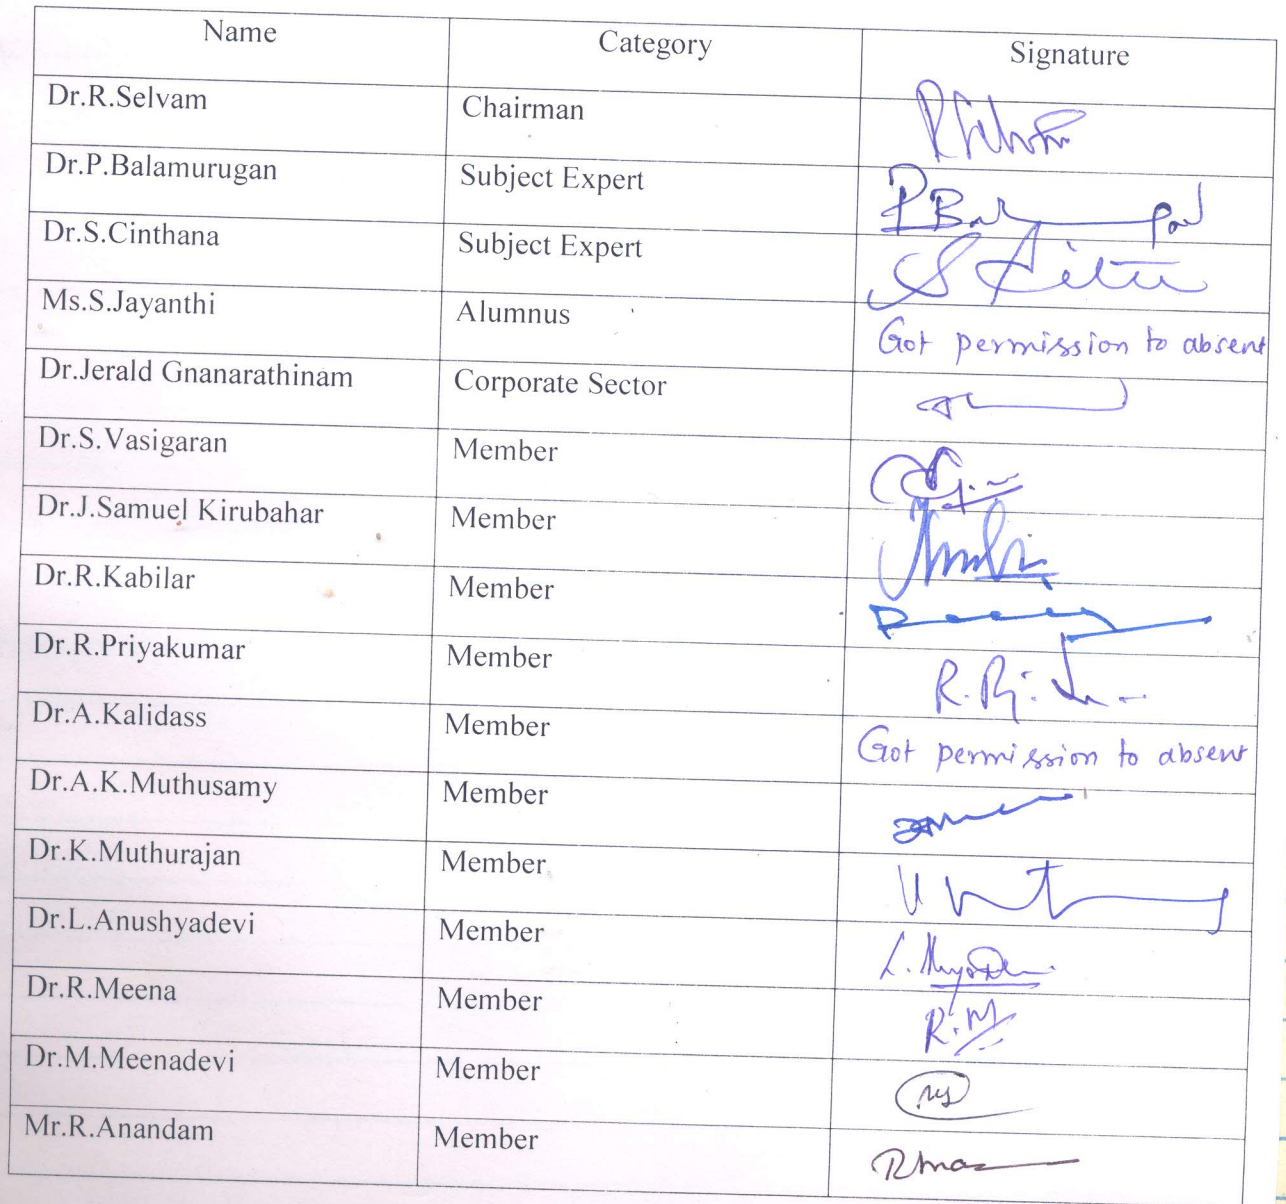 Name Category Signature
Dr.R.Selvam Chairman
Dr.P.Balamurugan Subject Expert
Dr.S.Cinthana Subject Expert
Ms.S.Jayanthi Alumnus Got permission to absent
Dr.Jerald Gnanarathinam Corporate Sector
Dr.S.Vasigaran Member
Dr.J.Samuel Kirubahar Member
Dr.R.Kabilar Member
Dr.R.Priyakumar Member
Dr.A.Kalidass Member Got permission to absent
Dr.A.K.Muthusamy Member
Dr.K.Muthurajan Member
Dr.L.Anushyadevi Member
Dr.R.Meena Member R.M
Dr.M.Meenadevi Member
Mr.R.Anandam Member